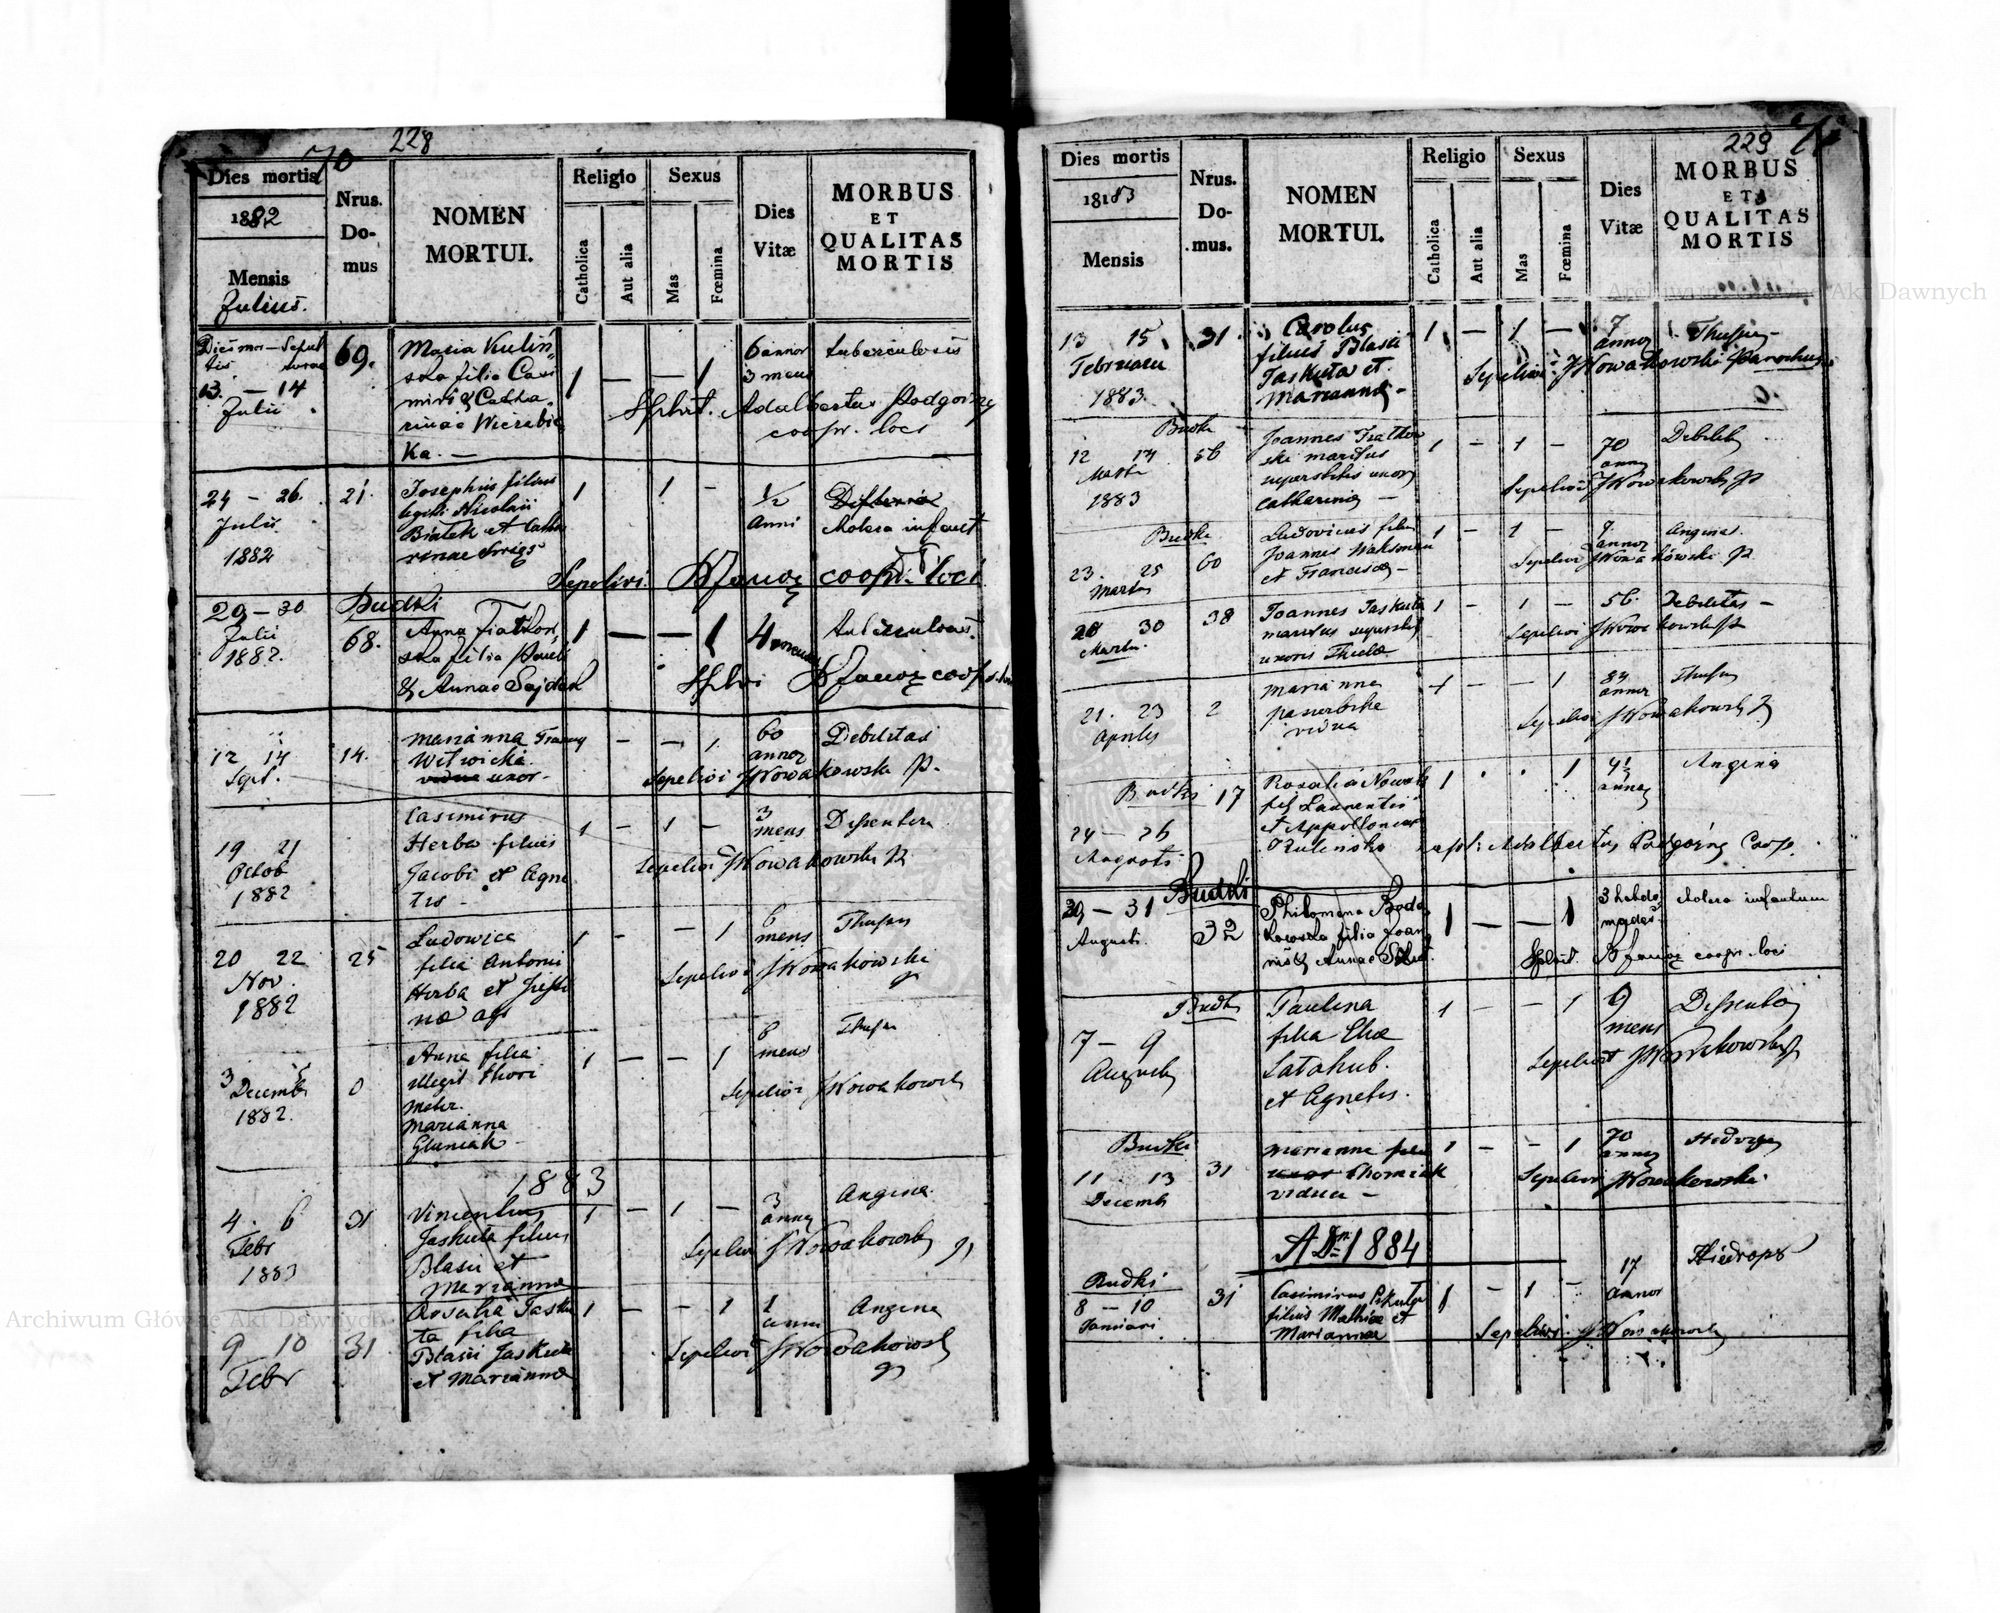 228
70
Dies mortis
1882
Mensis
Julius.
Nrus.
Do-
mus
NOMEN
MORTUI.
Religio
Catholica
Aut alia
Sexus
Mas
Fœmina
Dies
Vitæ
MORBUS
ET
QUALITAS
MORTIS
13. — 14
Julii
69.
Maria Kulin
ska filia Casi
miri & Catha
rinae Wierzbic
ka. —
1 — — 1
6 annor
3 mens
tuberculosis
Adalbertus Podgórny
coop. loci
24 — 26.
Julii
1882
21.
Josephus filius
legit. Nicolaii
Białek et Catha
rinae
1 1 —
1/2
Anni
cholera infant
Sepelivi. coop. loci
29 — 30
Julii
1882.
Budki
68.
Anna Fiatkow
ska filia Pauli
& Annae Sajdak
1 — — 1
4 mens
12 14
Sept.
14.
Marianna
Witwicki
uxor.
— — 1.
60
annor
Debilitas
Sepelivi JNowakowski P.
19 21
Octob
1882
Casimirus
Herba filius
Jacobi et Agne
tis —
1 — 1 —
3
mens
Dissenteria
Sepelivi JNowakowski P.
20 22
Nov.
1882
25
Ludowica
filia Antonii
Herba et
1 — — 1
6
mens
Thussis
Sepelivi JNowakowski
3 5
Decemb
1882.
0
Anna filia
illegit thori
Mater
Marianna
Gluniak
1 — — 1
6
mens
Thussis
Sepelivi JNowakowski
1883
4. 6
Febr
1883
31
Vincentius
Jaskuta filius
Blasii et
Marianna
1 — 1 —
3
annor
Angina.
Sepelivi JNowakowski
9 10
Febr
31
Rosalia Jasku
ta filia
Blasii Jaskuta
et Marianna
1 — — 1
1
anni
Angina
Sepelivi JNowakowski
229
Dies mortis
1883
Mensis
Nrus.
Do-
mus.
NOMEN
MORTUI.
Religio
Catholica
Aut alia
Sexus
Mas
Fœmina
Dies
Vitæ
MORBUS
ET
QUALITAS
MORTIS
13 15
Februarii
1883
31
Carolus
filius Blasii
Jaskuta et
Marianna —
1 — 1 —
7
annor
Thussis
Sepelivi JNowakowski Parochus
Budki
12 14
Martii
1883
56
Joannes Fiatkow
ski maritus
superstitis uxoris
Catharina —
1 — 1 —
70
annor
Debilitas
Sepelivi JNowakowski P
Budki
23. 25
Martii
60
Ludovicus filius
Joannis Waksmann
et Francisca —
1 — 1
annor
Angina.
Sepelivi JNowakowski P.
28 30
Martii.
38
Joannes Jaskuta
maritus superstitis
uxoris Thecla
1 — 1 —
56.
Debilitas —
Sepelivi JNowakowski P
21. 23
Aprilis
2
Marianna
Pasierbska
vidua
1 — — 1
84
annor
Thussis
Sepelivi JNowakowski P
Budki
24 — 26
Augusti
17
Rosalia Nowak
fil Laurentii
et Appolloniae
Kulinska
1 1
4½
annor
Angina
sepel: Adalbertus Podgórny Coop.
Budki
29 — 31
Augusti.
32
Philomena Boda
kowska filia Joan
nis & Annae
1 — — 1
3 hebdo
madas
cholera infantum
coopr. loci
Budki
7 — 9
Augusti
Paulina
filia Elia
Latahub.
et Agnetis.
1 — — 1
9
mens
Dissenteria
Sepelivit JNowakowski P
Budki
11 13
Decemb
31
Marianna
Chorniak
vidua —
1 — — 1
70
annor
Sepelivi JNowakowski.
A Dni 1884
Budki
8 — 10
Januari
31
Casimirus
filius Mathiae et
Mariannae
1 — 1 —
17
annor
Hiedrops
Sepelivi. JNowakowski
Archiwum Główne Akt Dawnych
Archiwum Główne Akt Dawnych